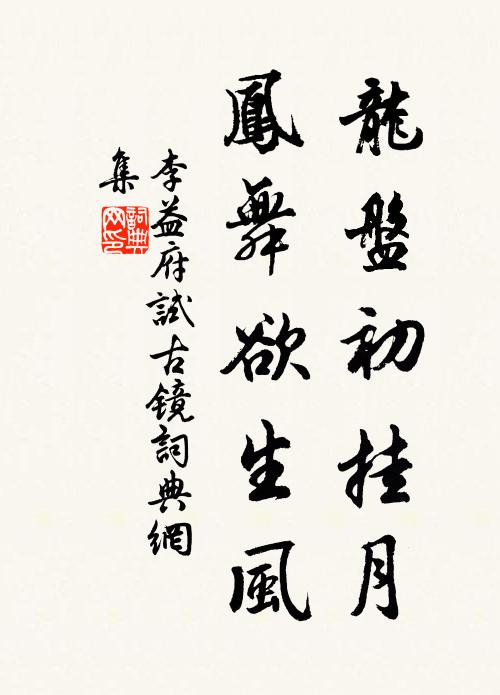 龍盤初挂月
鳳舞欲生風
李益府試古鏡詞典網
集
詞典
网印